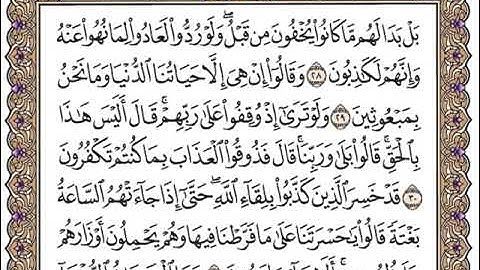 بَلْ بَدَا لَهُم مَّا كَانُوا۟ يُخْفُونَ مِن قَبْلُ ۖ وَلَوْ رُدُّوا۟ لَعَادُوا۟ لِمَا نُهُوا۟ عَنْهُ
وَإِنَّهُمْ لَكَـٰذِبُونَ ٢٨ وَقَالُوٓا۟ إِنْ هِىَ إِلَّا حَيَاتُنَا ٱلدُّنْيَا وَمَا نَحْنُ
بِمَبْعُوثِينَ ٢٩ وَلَوْ تَرَىٰٓ إِذْ وُقِفُوا۟ عَلَىٰ رَبِّهِمْ ۚ قَالَ أَلَيْسَ هَـٰذَا
بِٱلْحَقِّ ۚ قَالُوا۟ بَلَىٰ وَرَبِّنَا ۚ قَالَ فَذُوقُوا۟ ٱلْعَذَابَ بِمَا كُنتُمْ تَكْفُرُونَ
٣٠ قَدْ خَسِرَ ٱلَّذِينَ كَذَّبُوا۟ بِلِقَآءِ ٱللَّهِ ۖ حَتَّىٰٓ إِذَا جَآءَتْهُمُ ٱلسَّاعَةُ
بَغْتَةً قَالُوا۟ يَـٰحَسْرَتَنَا عَلَىٰ مَا فَرَّطْنَا فِيهَا وَهُمْ يَحْمِلُونَ أَوْزَارَهُمْ